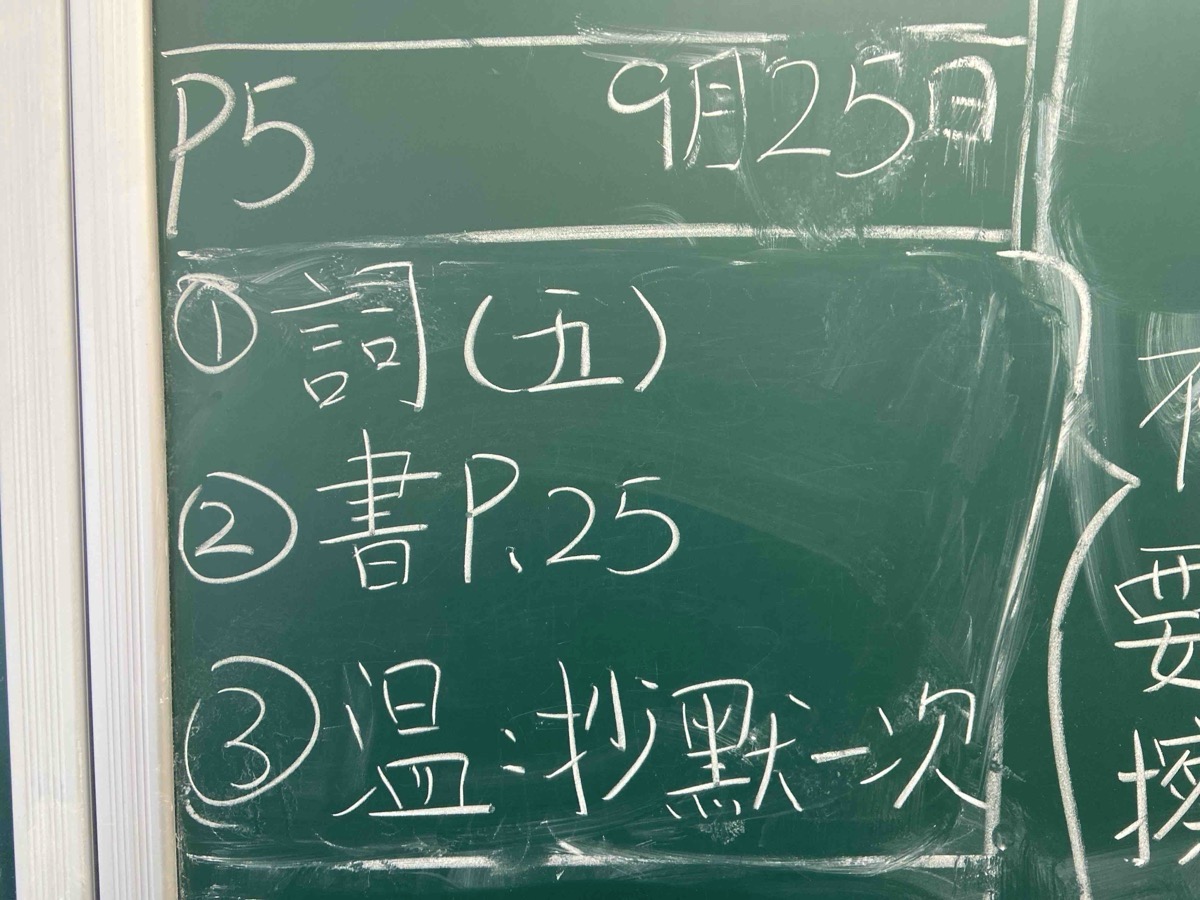 P5 9月25日
① 詞(五)
② 書P.25
③ 温:抄默一次
要